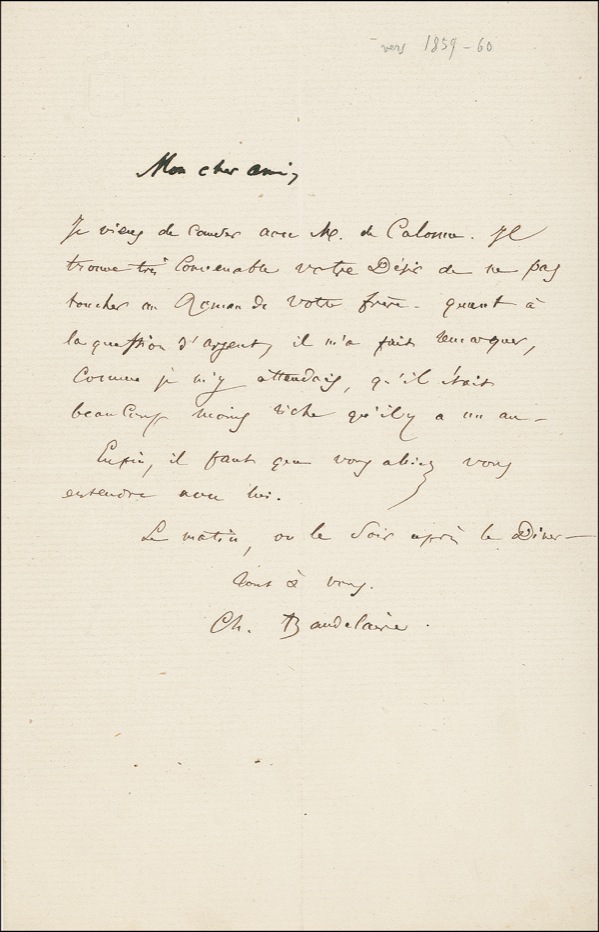 vers 1859-60
Mon cher ami,
Je viens de causer avec M. de Calonne. Il
trouve très convenable votre Désir de ne pas
toucher au Roman de votre frère. quant à
la question d'argent, il m'a fait remarquer,
comme je m'y attendais, qu'il était
beaucoup moins riche qu'il y a un an —
Enfin, il faut que vous alliez vous
entendre avec lui.
Le matin, ou le Soir après le Dîner —
Tout à vous.
Ch. Baudelaire.